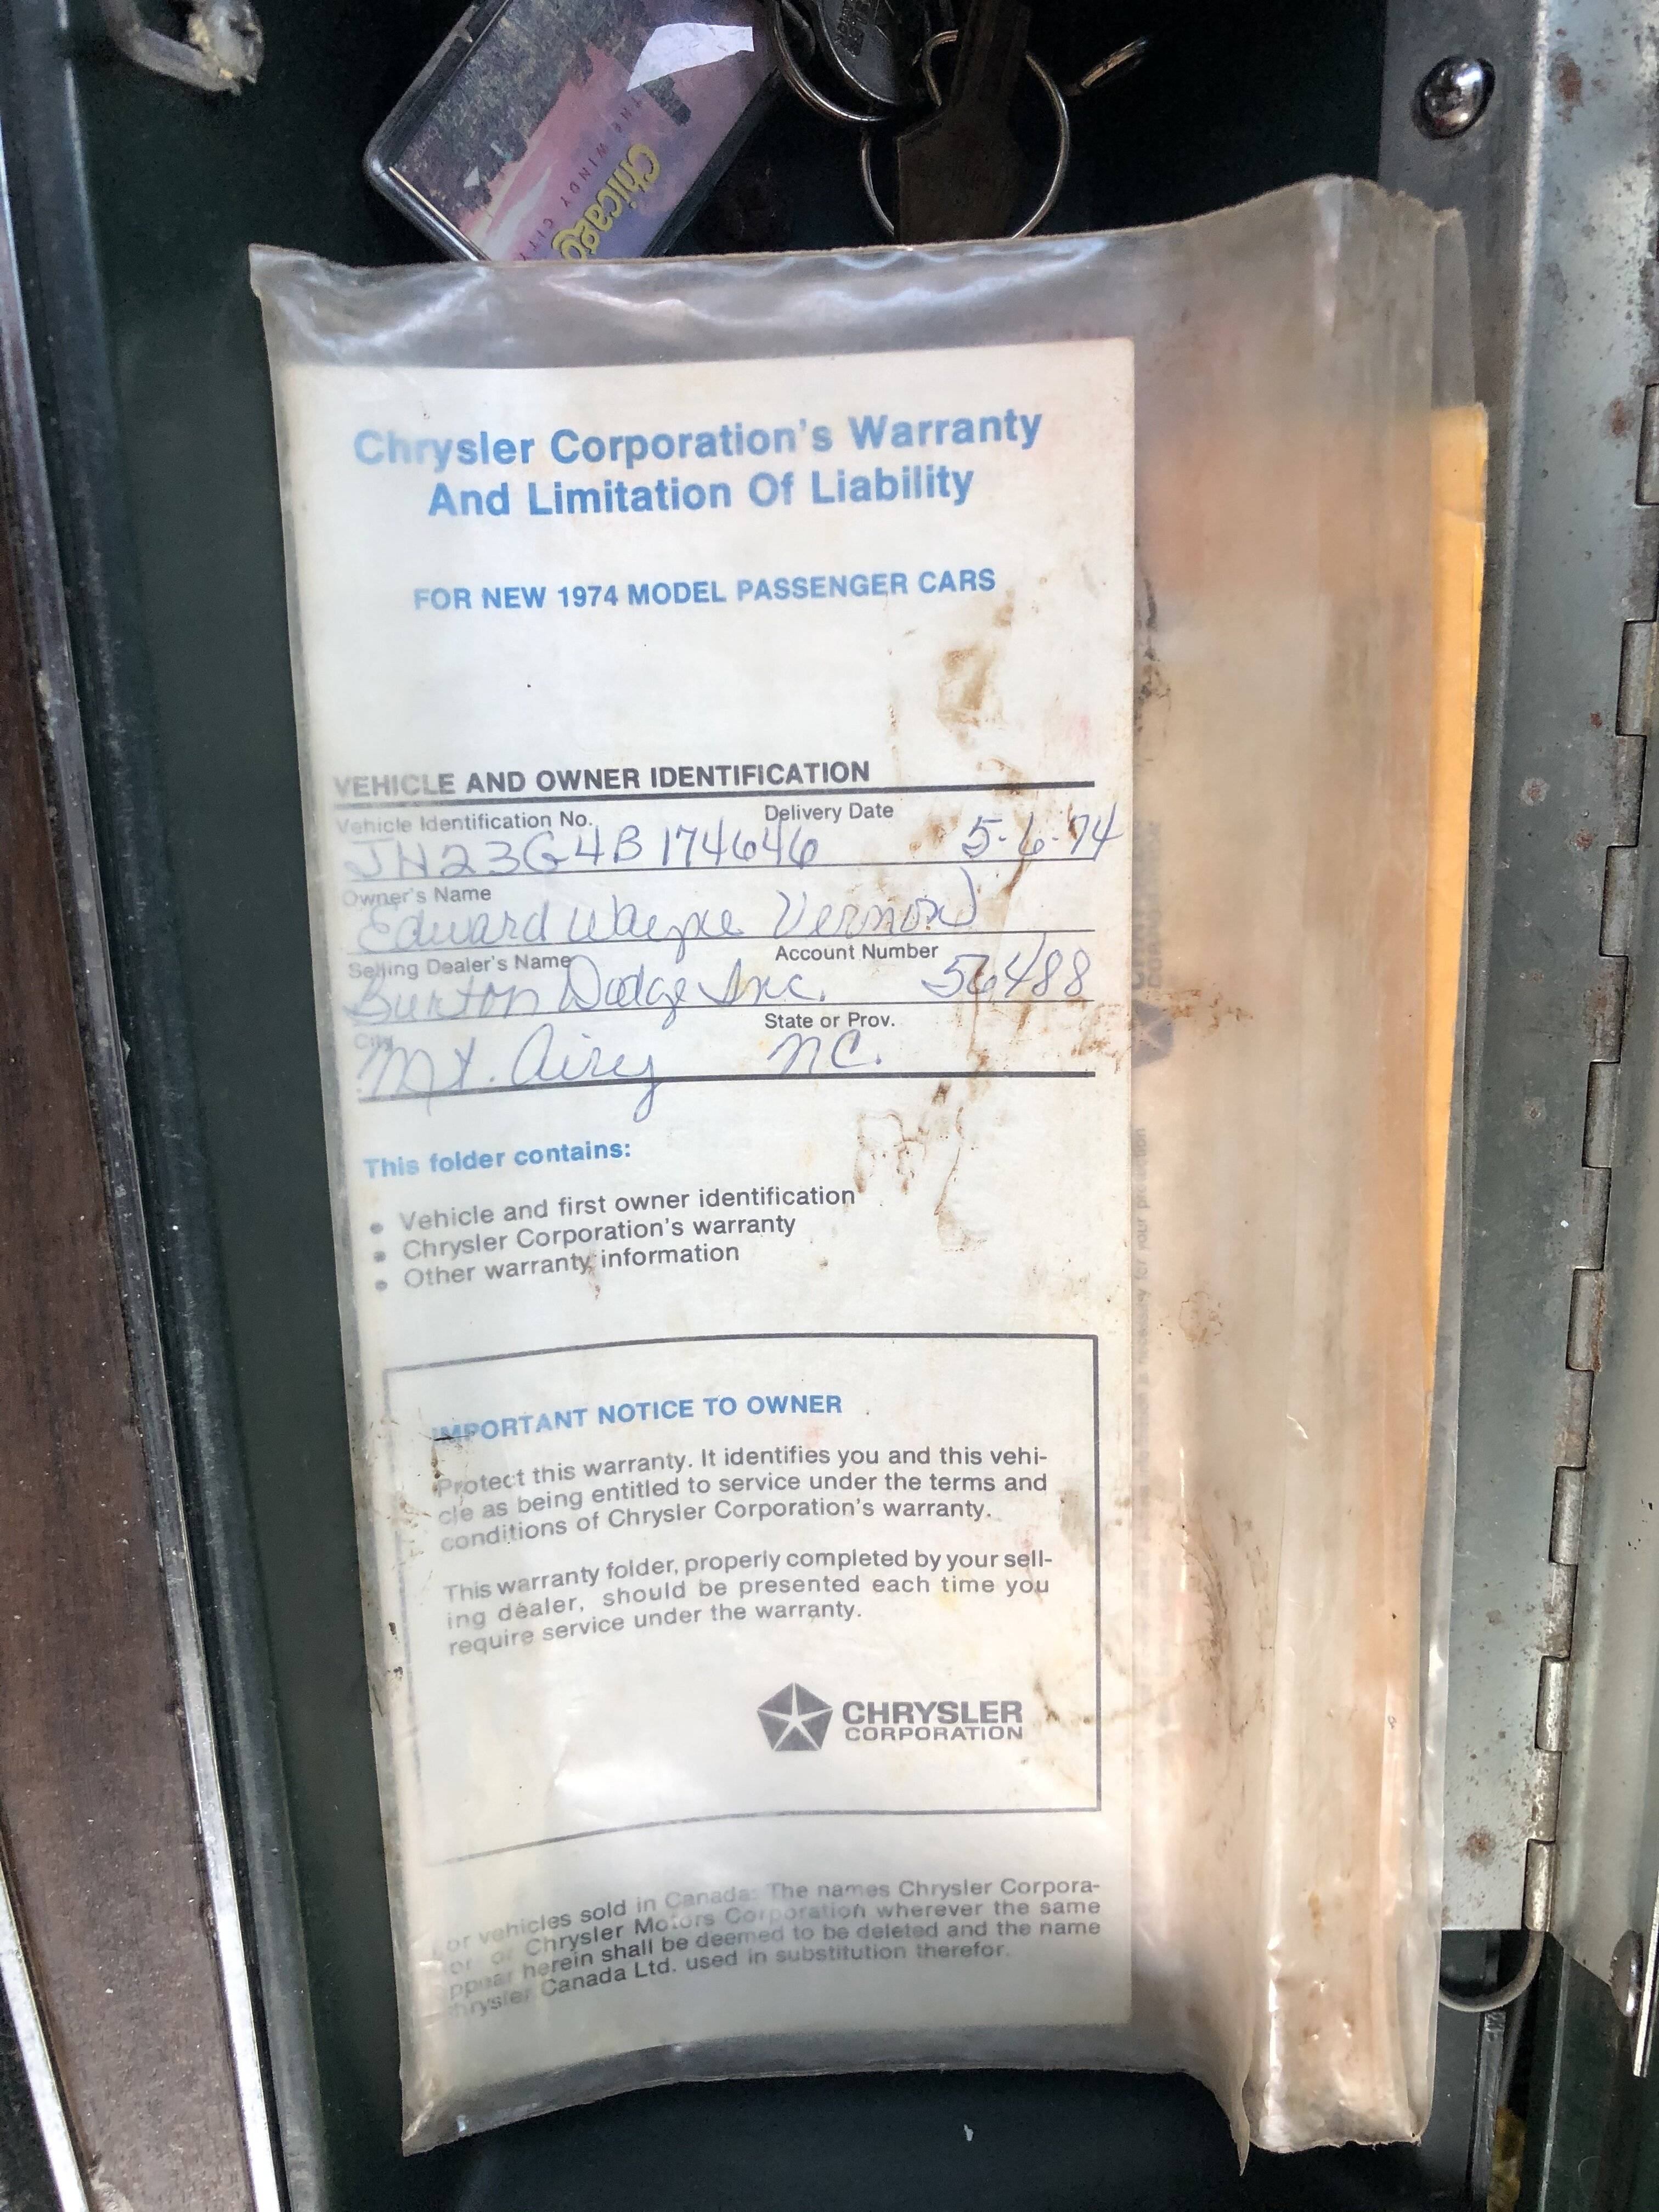 Chicago
THE WINDY CITY
Chrysler Corporation's Warranty
And Limitation Of Liability
FOR NEW 1974 MODEL PASSENGER CARS
VEHICLE AND OWNER IDENTIFICATION
Vehicle Identification No. Delivery Date
JH23G4B174646 5-6-74
Owner's Name
Edward Wayne Vernon
Selling Dealer's Name Account Number
Burton Dodge Inc. 56488
City State or Prov.
Mt. Airy NC.
This folder contains:
• Vehicle and first owner identification
• Chrysler Corporation's warranty
• Other warranty information
IMPORTANT NOTICE TO OWNER
Protect this warranty. It identifies you and this vehi-
cle as being entitled to service under the terms and
conditions of Chrysler Corporation's warranty.
This warranty folder, properly completed by your sell-
ing dealer, should be presented each time you
require service under the warranty.
CHRYSLER
CORPORATION
For vehicles sold in Canada: The names Chrysler Corpora-
or Chrysler Motors Corporation wherever the same
appear herein shall be deemed to be deleted and the name
Chrysler Canada Ltd. used in substitution therefor.